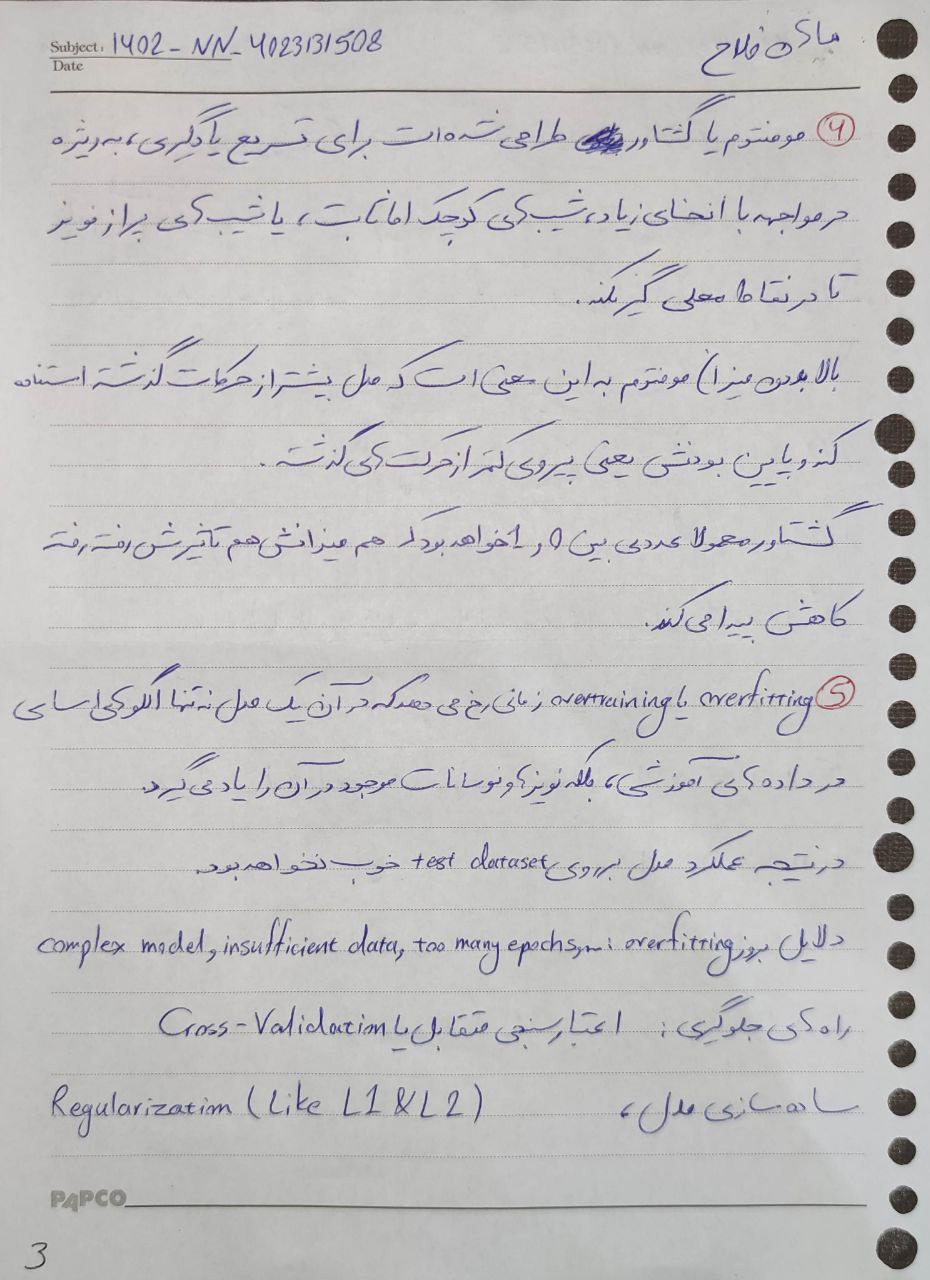 Subject: 1402-NN-4023131508
Date
فلاح
④ مومنتوم یا گشتاور طراحی شده است برای تسریع یادگیری، به ویژه
در مواجهه با انحنای زیاد، شیب های کوچک اما ثابت، یا شیب های پر از نویز
تا در نقاط محلی گیر نکند.
بالا بودن میزان مومنتوم به این معنی است که مدل بیشتر از حرکات گذشته استفاده
کند و پایین بودنش یعنی پیروی کمتر از حرکت های گذشته.
گشتاور معمولا عددی بین 0 و 1 خواهد بود که هم میزانش هم تاثیرش رفته رفته
کاهش پیدا می کند.
⑤ overfitting یا overtraining زمانی رخ می دهد که در آن یک مدل نه تنها الگوهای اساسی
در داده های آموزشی، بلکه نویزها و نوسانات موجود در آن را یاد می گیرد.
در نتیجه عملکرد مدل بر روی test dataset خوب نخواهد بود.
دلایل بروز overfitting: complex model, insufficient data, too many epochs,...
راه های جلوگیری: اعتبارسنجی متقابل یا Cross-Validation
ساده سازی مدل، Regularization (Like L1 & L2)
PAPCO
3